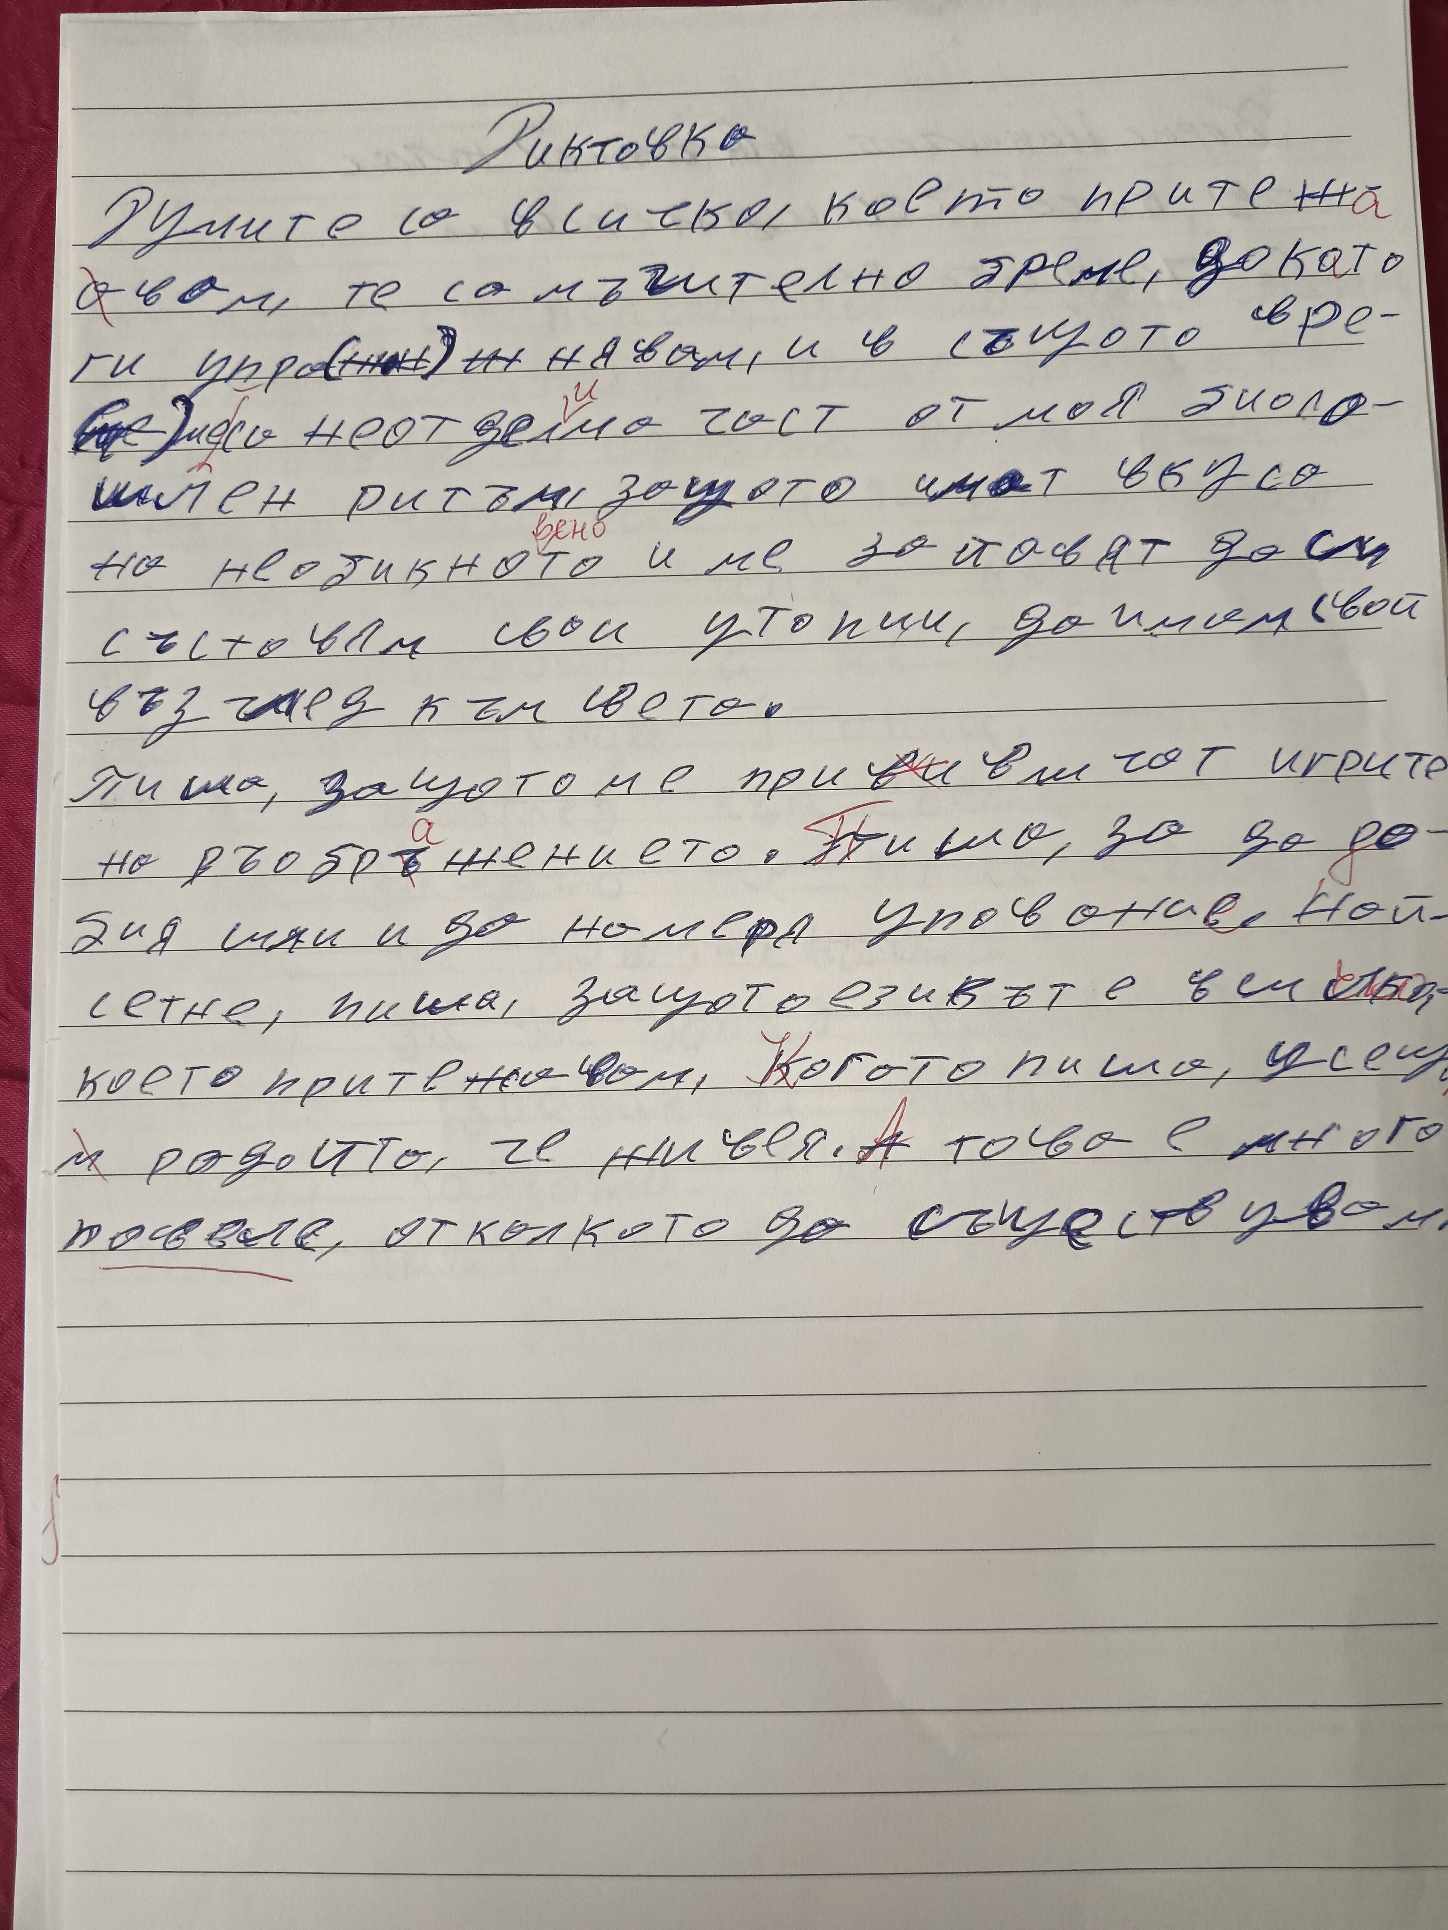 Диктовка
Думите са всичко, което притежа
авам, те са мъчително бреме, докато
ги упражнявам, и в същото вре-
ме са неотделима част от моя биоло-
ен ритъм, защото имат вкуса
на необикнвеното и ме заставят да си
съставям свои утопии, да имам свой
възглед към света.
Пиша, защото ме привличат игрите
на въображението. Пиша, за да до-
бия и да намеря упование. Най-
сетне, пиша, защото езикът е всичко,
което притежавам, Когато пиша, усещ
м радостта, че живея. А това е много
повече, отколкото да съществувам.